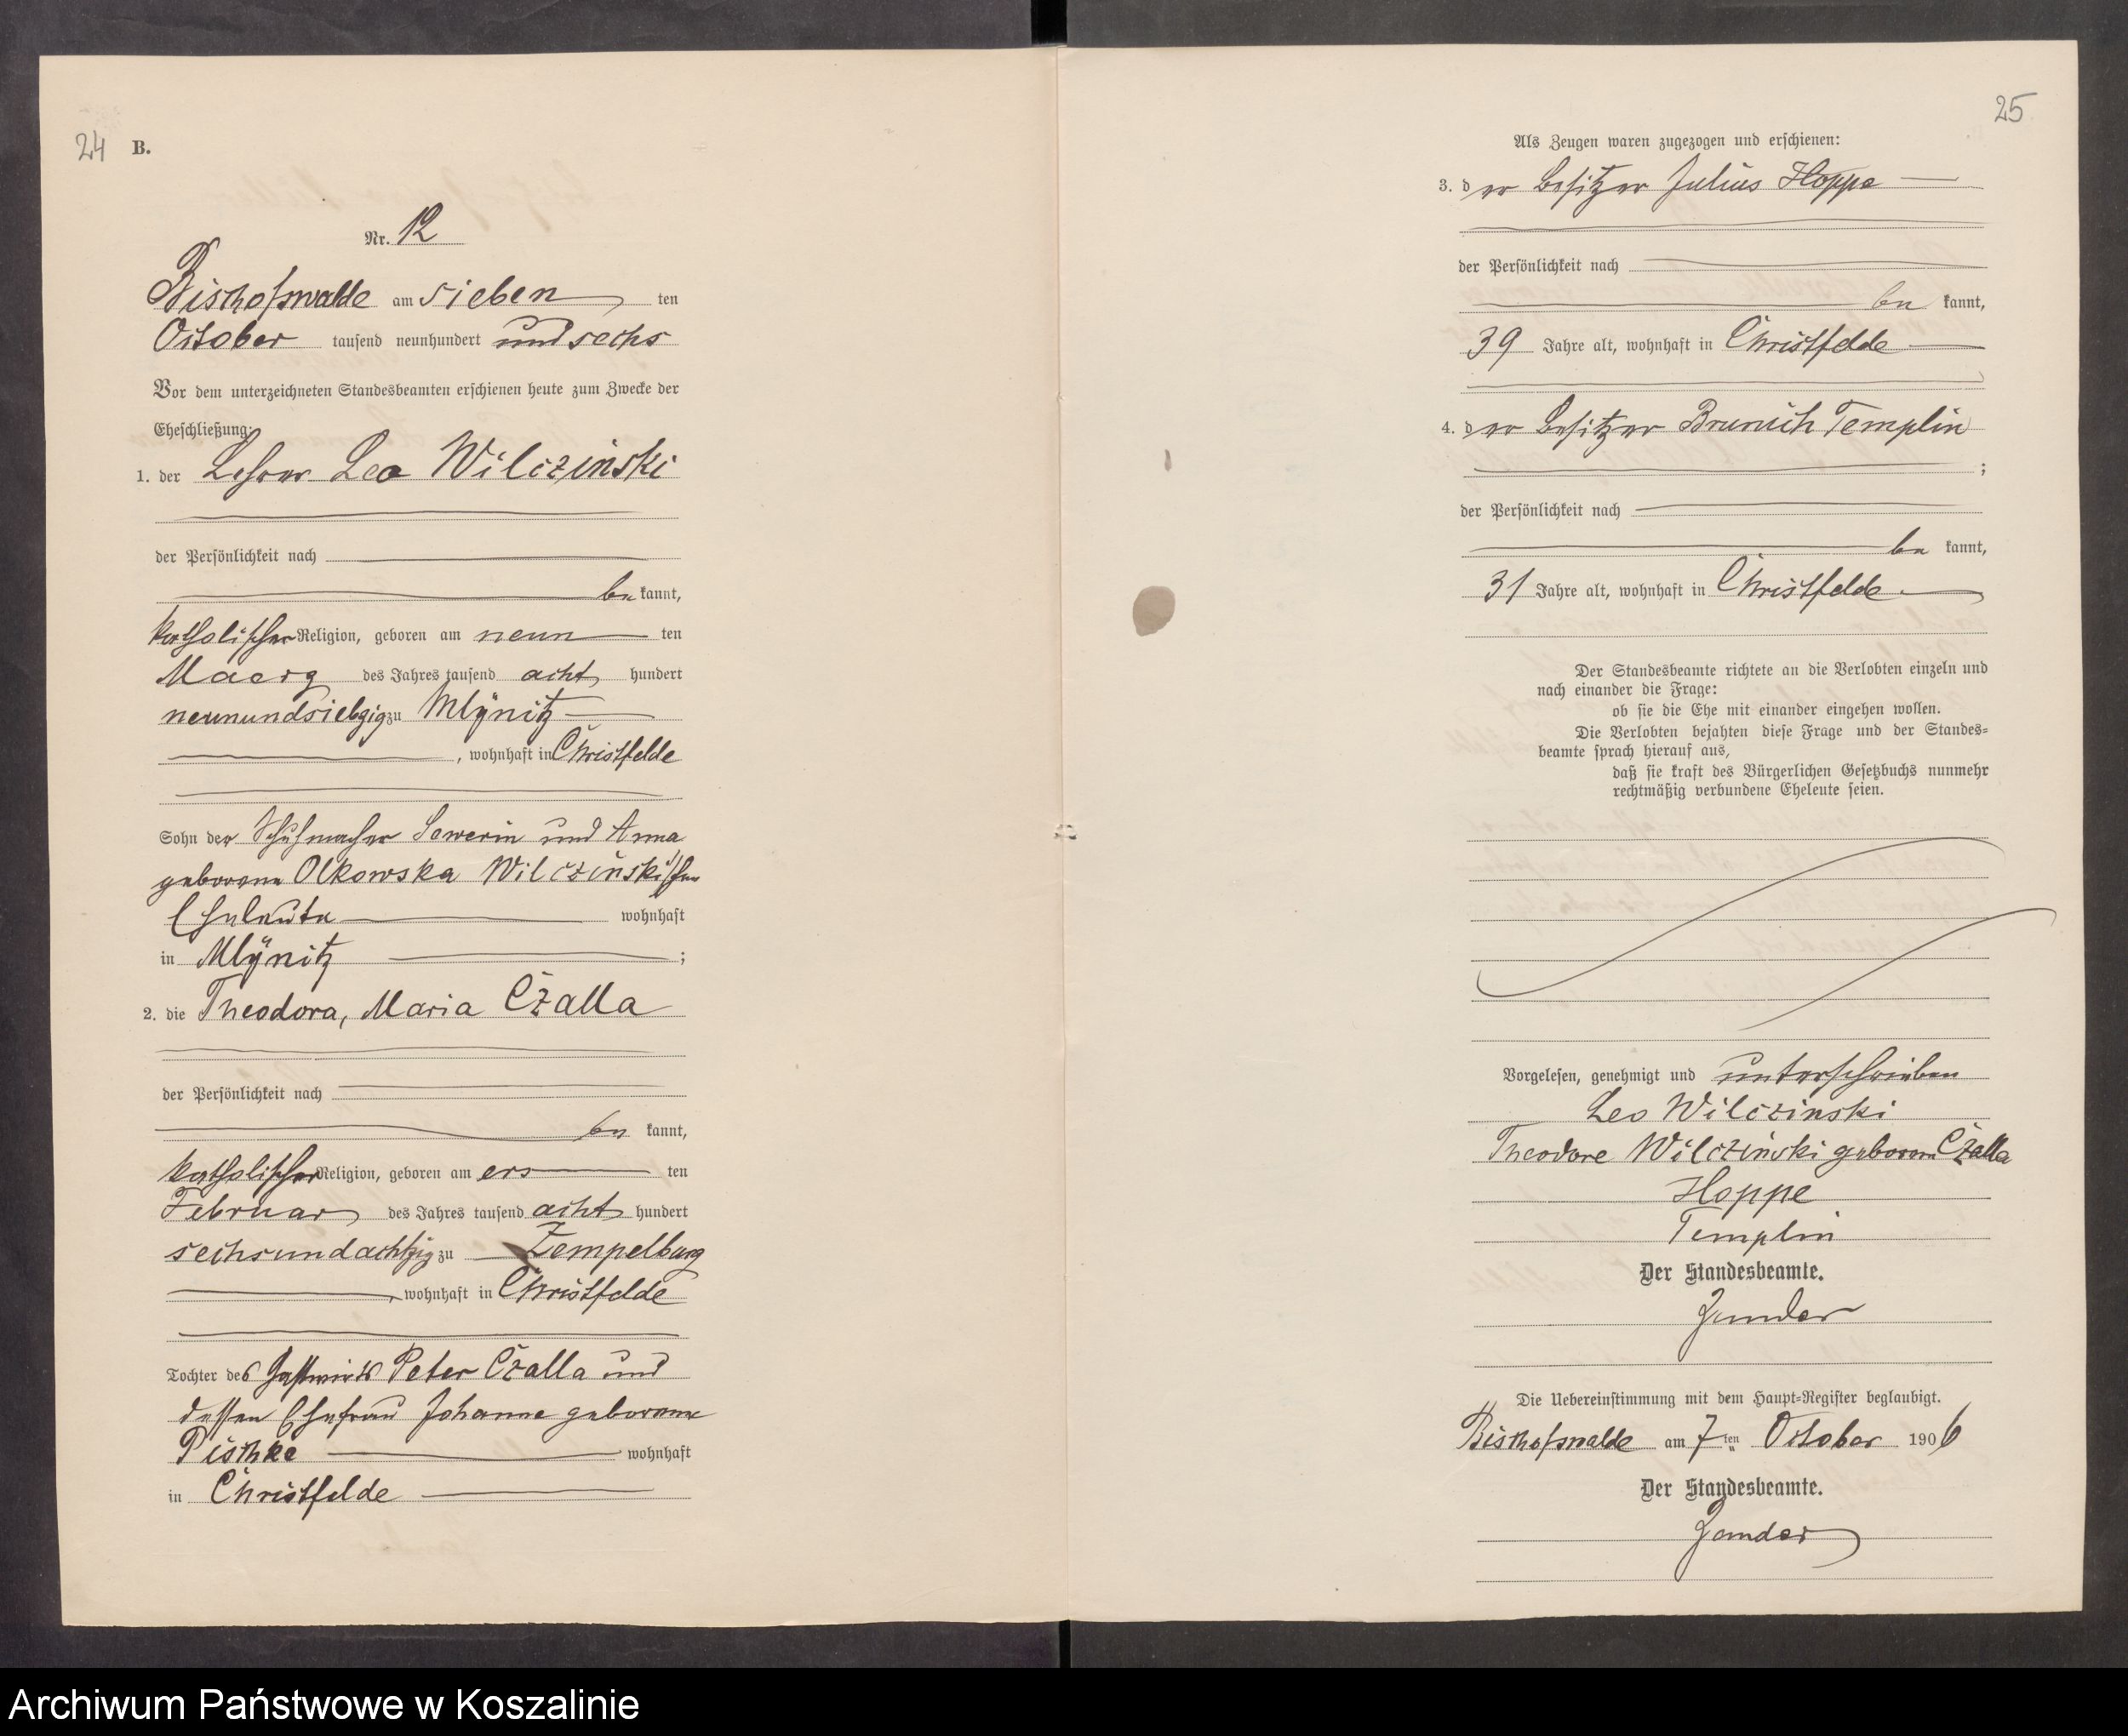 24 B.
Nr. 12
Bischofswalde am sieben ten
October tausend neunhundert und sechs
Vor dem unterzeichneten Standesbeamten erschienen heute zum Zwecke der
Eheschließung:
1. der Lehrer Leo Wilczinski
der Persönlichkeit nach
be kannt,
katholischer Religion, geboren am neun ten
Maerz des Jahres tausend acht hundert
neunundsiebzig zu Mlynitz
, wohnhaft in Christfelde
Sohn der Schuhmacher Sewerin und Anna
geborene Olkowska Wilczinskischen
Eheleute wohnhaft
in Mlynitz ;
2. die Theodora, Maria Czalla
der Persönlichkeit nach
be kannt,
katholischer Religion, geboren am ers ten
Februar des Jahres tausend acht hundert
sechsundachtzig zu Zempelburg
, wohnhaft in Christfelde
Tochter des Gastwirts Peter Czalla und
dessen Ehefrau Johanne geborene
Pischke wohnhaft
in Christfelde
25
Als Zeugen waren zugezogen und erschienen:
3. der Besitzer Julius Hoppe
der Persönlichkeit nach
be kannt,
39 Jahre alt, wohnhaft in Christfelde
4. der Besitzer Templin
;
der Persönlichkeit nach
be kannt,
31 Jahre alt, wohnhaft in Christfelde
Der Standesbeamte richtete an die Verlobten einzeln und
nach einander die Frage:
ob sie die Ehe mit einander eingehen wollen.
Die Verlobten bejahten diese Frage und der Standes-
beamte sprach hierauf aus,
daß sie kraft des Bürgerlichen Gesetzbuchs nunmehr
rechtmäßig verbundene Eheleute seien.
Vorgelesen, genehmigt und unterschrieben
Leo Wilczinski
Theodore Wilczinski geborene Czalla
Hoppe
Templin
Der Standesbeamte.
Zander
Die Uebereinstimmung mit dem Haupt-Register beglaubigt.
Bischofswalde am 7ten October 1906
Der Standesbeamte.
Zander
Archiwum Państwowe w Koszalinie